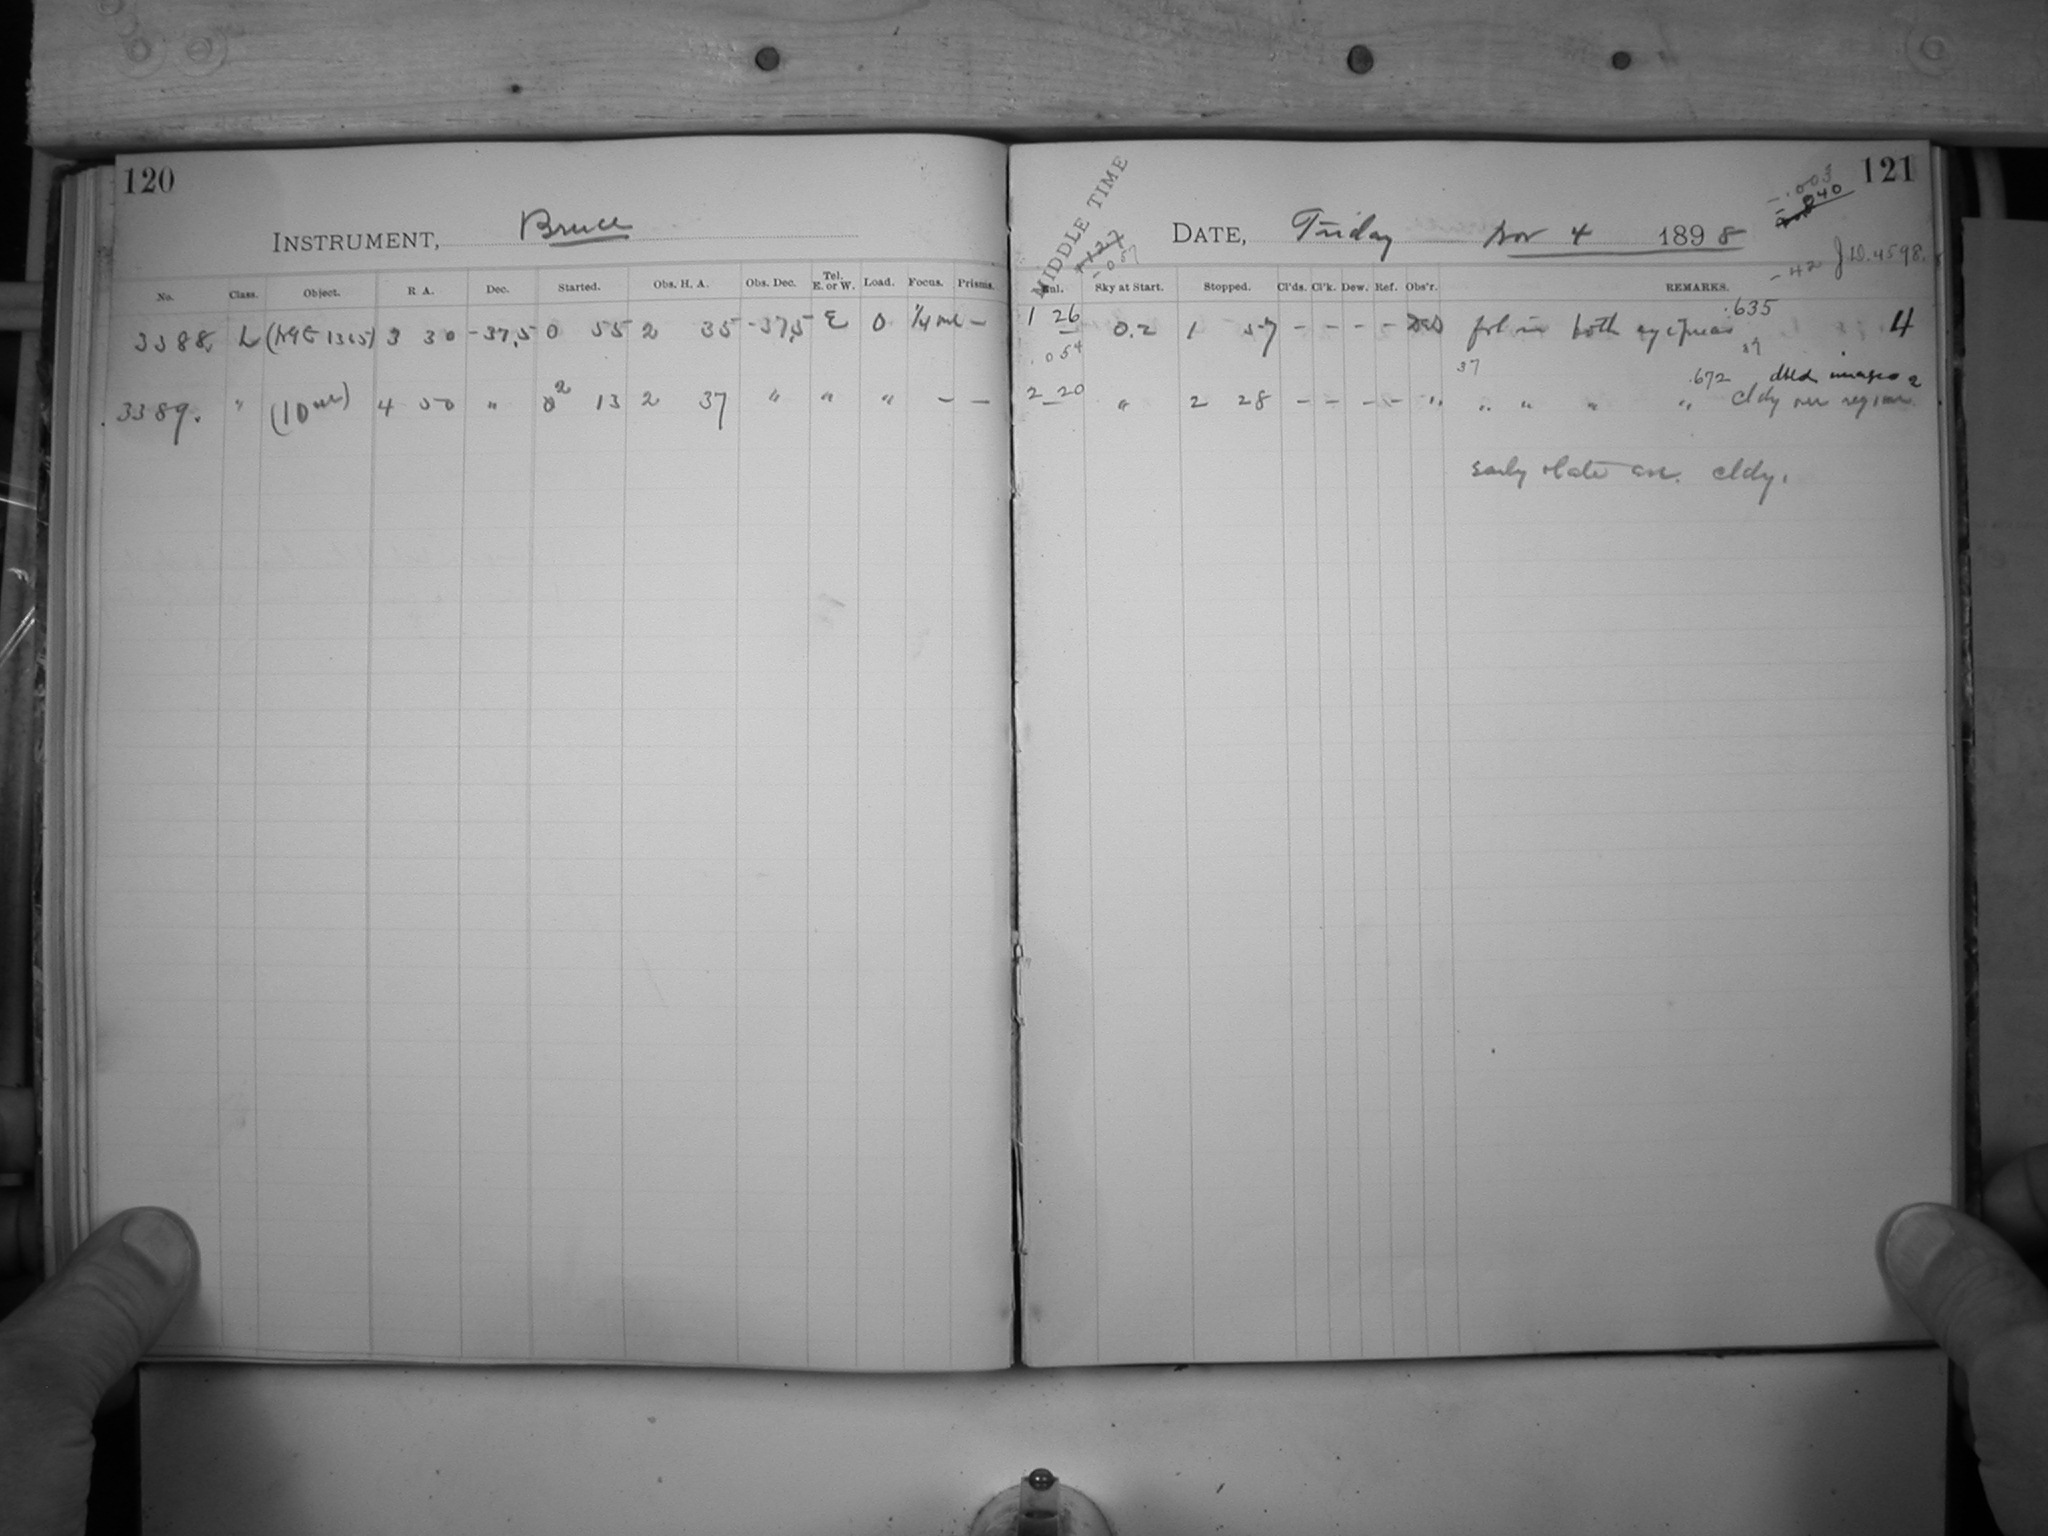 120
INSTRUMENT, Bruce
No. Class. Object. R A. Dec. Started. Obs. H. A. Obs. Dec. Tel. E. or W. Load. Focus. Prisms.
3388. L (NGC 1365) 3 30 -37.5 0 55 2 35 -37.5 E 0 1/4 –
3389. " (10 4 50 " 2 13 2 37 " " " – –
121
MIDDLE TIME
DATE, Friday Nov 4 1898
-.003
.040
-.42 J.D. 4598.
Sky at Start. Stopped. Cl'ds. Cl'k. Dew. Ref. Obs'r. REMARKS.
.635
1 26 0.2 1 57 – – – – fol in both eyepieces 4
.054
37
.672 dbld images
2 20 " 2 28 – – – – " " " " " cldy over region
early & late eve. cldy.